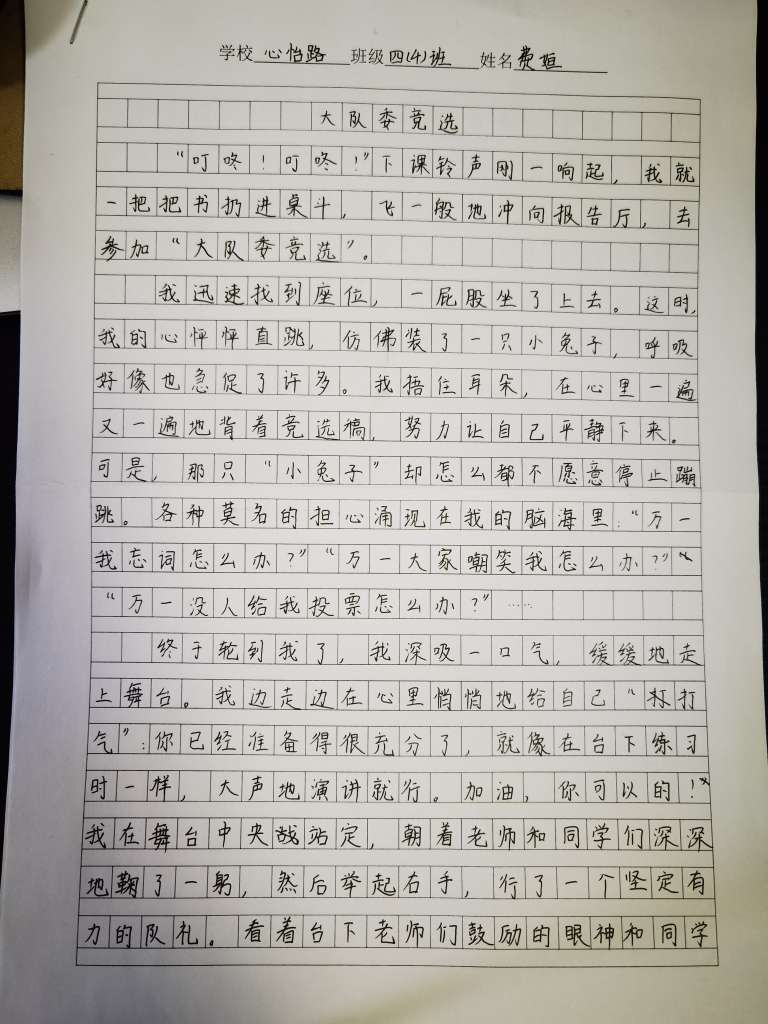 学校 心怡路 班级 四(4)班 姓名 费姮
大队委竞选
“叮咚！叮咚！”下课铃声刚一响起，我就
一把把书扔进桌斗，飞一般地冲向报告厅，去
参加“大队委竞选”。
我迅速找到座位，一屁股坐了上去。这时，
我的心怦怦直跳，仿佛装了一只小兔子，呼吸
好像也急促了许多。我捂住耳朵，在心里一遍
又一遍地背着竞选稿，努力让自己平静下来。
可是，那只“小兔子”却怎么都不愿意停止蹦
跳。各种莫名的担心涌现在我的脑海里：“万一
我忘词怎么办？”“万一大家嘲笑我怎么办？”
“万一没人给我投票怎么办？”……
终于轮到我了，我深吸一口气，缓缓地走
上舞台。我边走边在心里悄悄地给自己“打打
气”：你已经准备得很充分了，就像在台下练习
时一样，大声地演讲就行。加油，你可以的！”
我在舞台中央站定，朝着老师和同学们深深
地鞠了一躬，然后举起右手，行了一个坚定有
力的队礼。看着台下老师们鼓励的眼神和同学